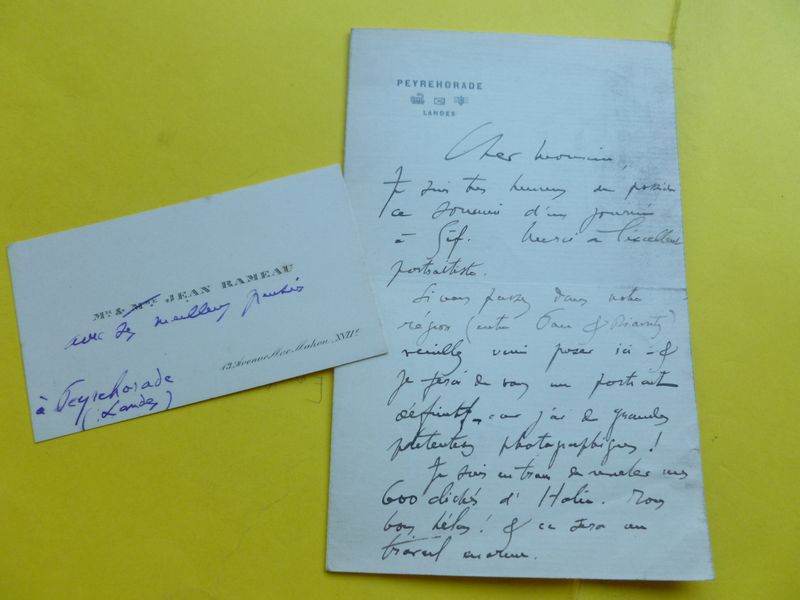 PEYREHORADE
LANDES
Cher Monsieur,
Je suis très heureux de posséder
ce souvenir d'une journée
à Gif. Merci à l'excellent
portraitiste.
Si vous passez dans notre
région (entre Pau & Biarritz)
veuillez venir poser ici - &
je ferai de vous un portrait
définitif, car j'ai de grandes
prétentions photographiques !
Je suis en train de révéler mes
600 clichés d'Italie. Tous
bons hélas ! & ce sera un
travail énorme.
Mr & Mme JEAN RAMEAU
avec ses meilleures pensées
13 Avenue Mac-Mahon, XVIIe
à Peyrehorade
(Landes)